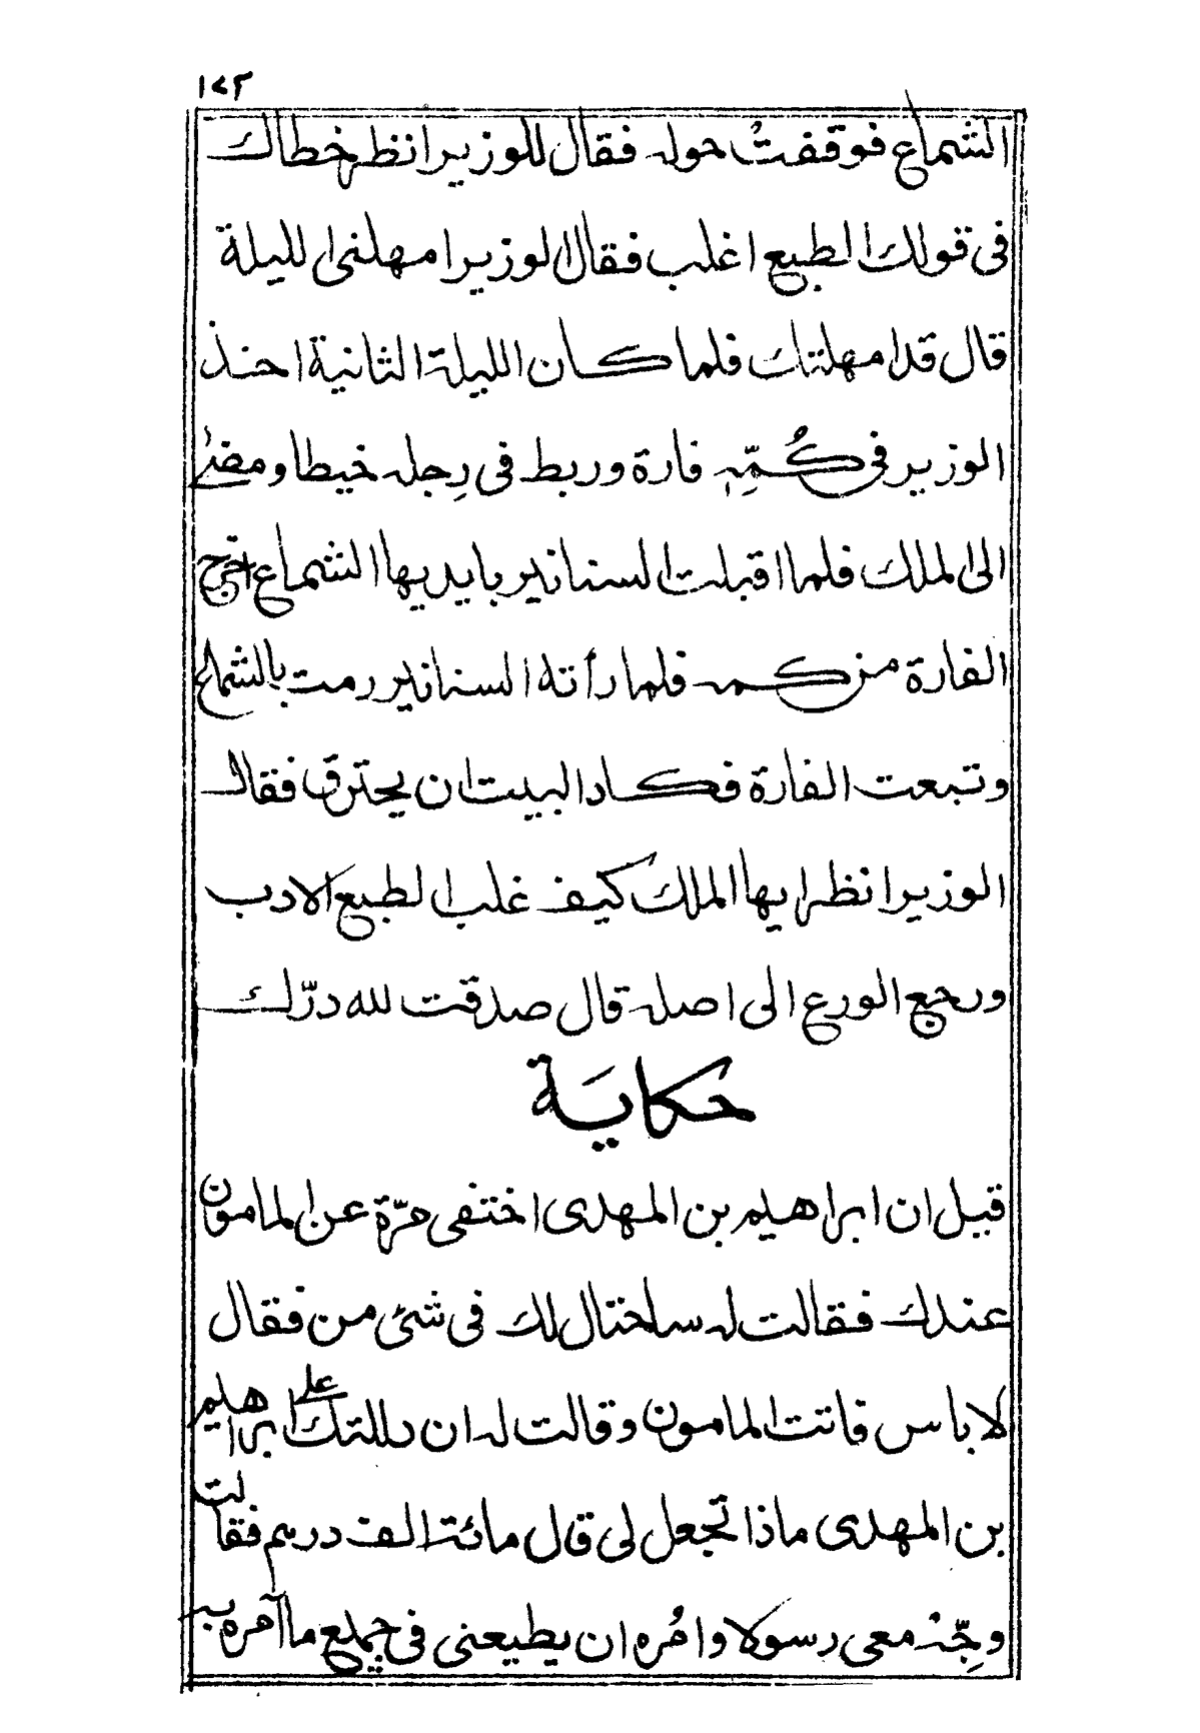 ١٤٣
الشماع فوقفتُ حوله فقال للوزير انظر خطاك
فى قولك الطبع اغلب فقال الوزير امهلنى الليلة
قال قد امهلتك فلما كان الليلة الثانية اخذ
الوزير فى كُمِّهٖ فارة وربط فى رِجله خيطا ومضىٰ
الى الملك فلما اقبلت السنانير بايديها الشماع اخرج
الفارة من كمه فلما رأته السنانير رمت بالشماع
وتبعت الفارة فكاد البيت ان يحترق فقال
الوزير انظر ايها الملك كيف غلب الطبع الادب
ورجع الورع الى اصله قال صدقت لله درّك
حكايَة
قيل ان ابراهيم بن المهدى اختفى مرّة عن المامون
عندك فقالت له ساحتال لك فى شئ من فقال
لا باس فاتت المامون وقالت له ان دللتك على ابراهيم
بن المهدى ماذا تجعل لى قال مائة الف درهم فقالت
وجِّهْ معى رسولا وامُره ان يطيعنى فى جميع ما آمره به